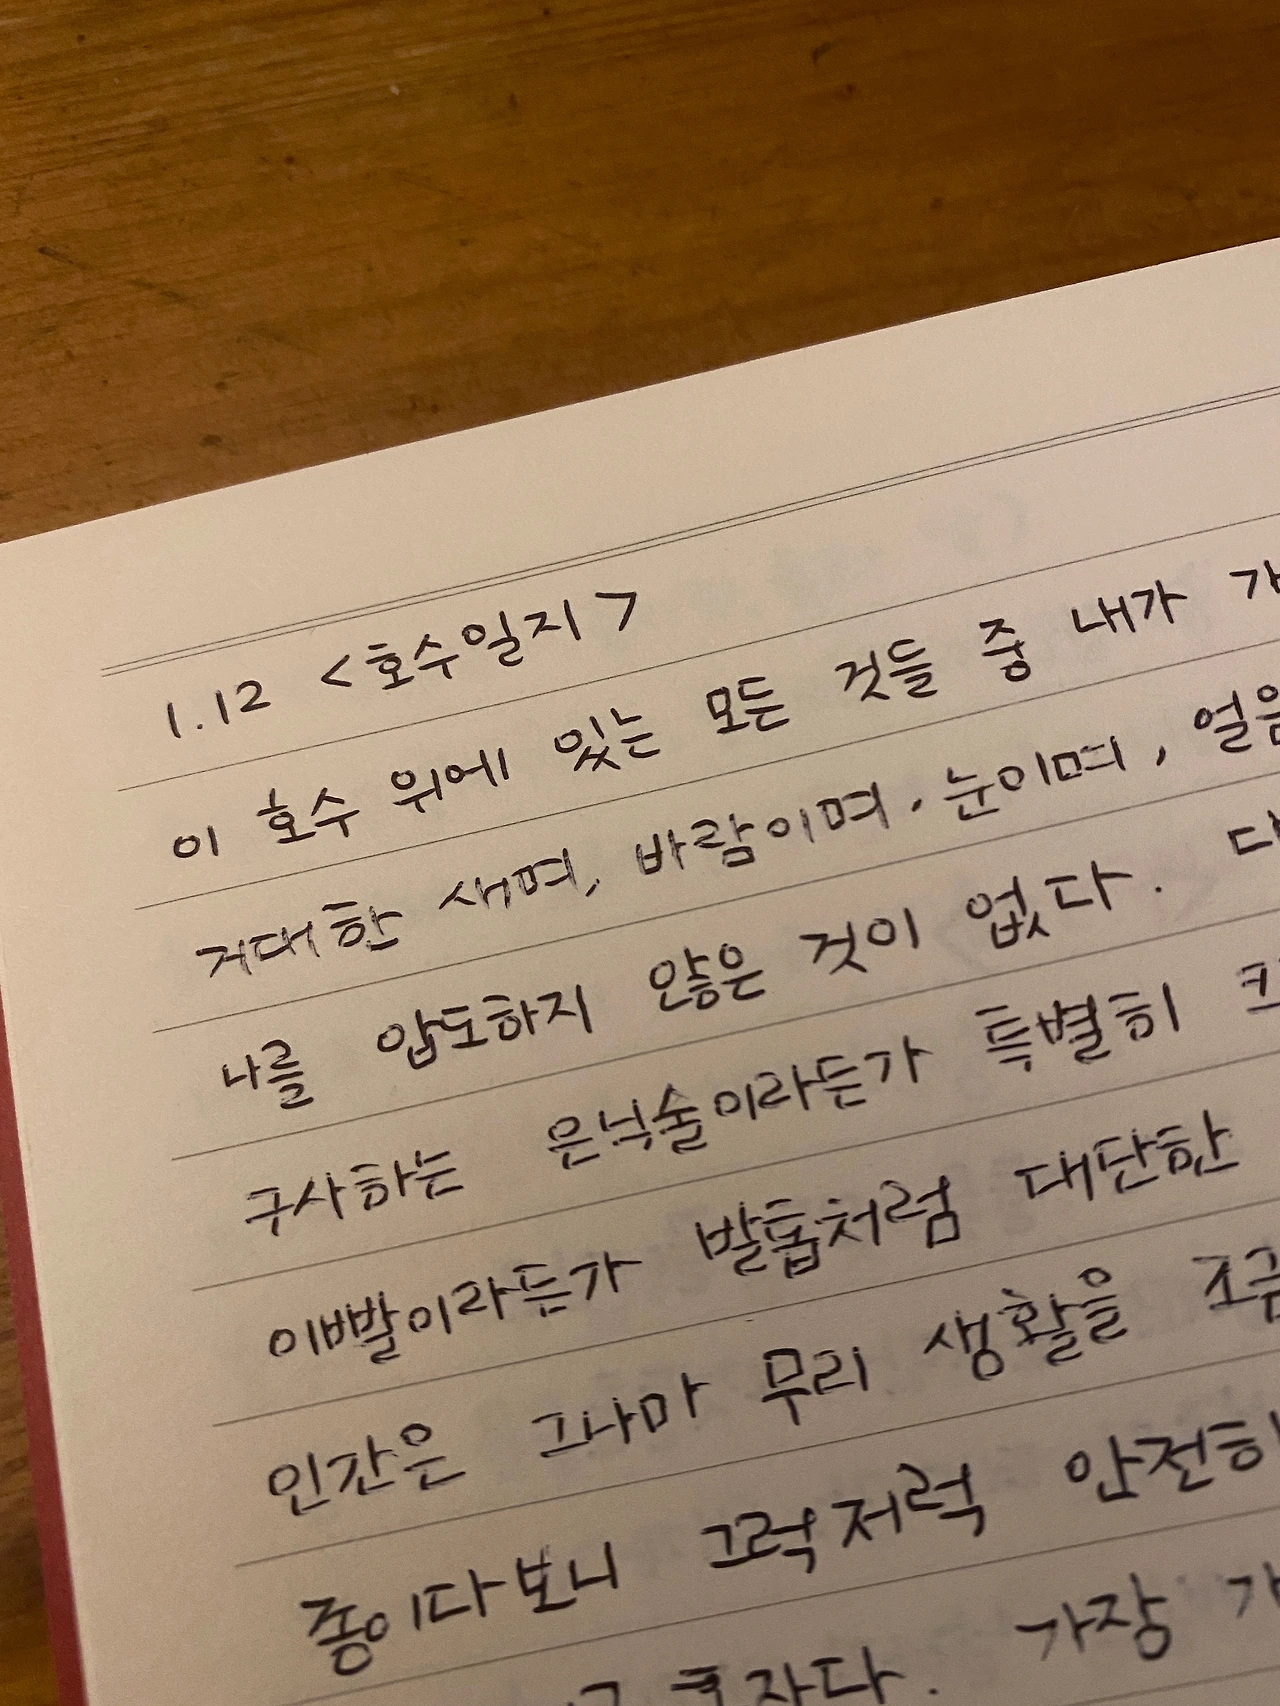 1.12 <호수일지>
이 호수 위에 있는 모든 것들 중 내가
거대한 새며, 바람이며, 눈이며, 얼음
나를 압도하지 않은 것이 없다.
구사하는 은닉술이라든가 특별히
이빨이라든가 발톱처럼 대단한
인간은 그나마 무리 생활을 조금
종이다보니 그럭저럭 안전하
혼자다. 가장